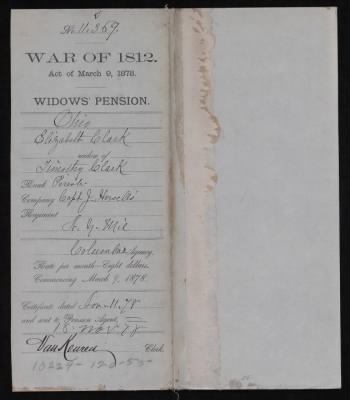 No. 11,369.
WAR OF 1812.
Act of March 9, 1878.
WIDOWS' PENSION.
Ohio
Elizabeth Clark
widow of
Timothy Clark
Rank Private
Company Capt J.
Regiment
N. Y. Mil
Columbus Agency.
Rate per month—Eight dollars.
Commencing March 9, 1878.
Certificate dated Nov. 11. 78
and sent to Pension Agent,
18 Nov 78
Van Keuren Clerk.